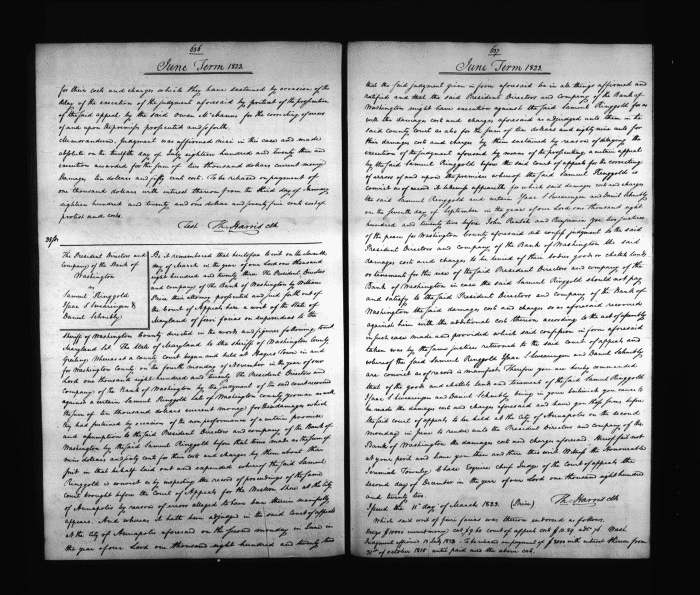 636
June Term 1823.
for their cost and charges which they have sustained by occasion of the
delay of the execution of the judgment aforesaid by pretext of the prosecution
of the said appeal by the said Owen for the correcting of errors
of and upon the premises prosecuted and so forth.
Memorandum. Judgment was affirmed in this case and made
absolute on the twelfth day of July eighteen hundred and twenty three and
execution awarded for the sum of two thousand dollars current money
damages ten dollars and fifty cent cost. To be released on payment of
one thousand dollars with interest thereon from the third day of
eighteen hundred and twenty and one dollar and seventy five cents cost of
protest and costs.
Test Th: Harris clk
The President Directors and
Company of the Bank of
Washington
vs
Samuel Ringgold
Isaac S Swearingen &
Daniel Schnebly
Be it remembered that heretofore to wit on the eleventh
day of March in the year of our Lord one thousand
eight hundred and twenty three The President Directors
and company of the Bank of Washington by William
Price their attorney prosecuted and sued forth out of
the Court of Appeals here a writ of the State of
Maryland of fieri facias on supersedeas to the
Sheriff of Washington County directed in the words and figures following, to wit
Maryland Sct. The State of Maryland to the sheriff of Washington County
Greeting. Whereas at a county court began and held at Hagers Town in and
for Washington County on the fourth monday of November in the year of our
Lord one thousand eight hundred and twenty The President Directors and
Company of the Bank of Washington by the judgment of the said court recovered
against a certain Samuel Ringgold late of Washington County yeoman as well
the sum of ten thousand dollars current money for their damages which
they had sustained by occasion of the non performance of a certain promise
and assumption to the said President Directors and company of the Bank of
Washington by the said Samuel Ringgold before that time made as the sum of
nine dollars and forty cents for their costs and charges by them about their
suit in that behalf laid out and expended whereof the said Samuel
Ringgold is convict as by inspecting the record of proceedings of the same
court brought before the Court of Appeals for the Western Shore at the City
of Annapolis by reason of errors alleged to have been therein manifestly
appears. And whereas it hath been adjudged in the said Court of appeals
at the city of Annapolis aforesaid on the second monday in June in
the year of our Lord one thousand eight hundred and twenty two
637
June Term 1823.
that the said judgment given in form aforesaid be in all things affirmed and
ratified and that the said President Directors and Company of the Bank of
Washington might have execution against the said Samuel Ringgold for as
well the damages cost and charges aforesaid as adjudged unto them in the
said county court as also for the sum of ten dollars and eighty nine cents for
their damages cost and charges by them sustained by reason of delaying the
execution of the judgment aforesaid by means of the prosecuting a certain appeal
by the said Samuel Ringgold before the said court of appeal for the correcting
of errors of and upon the premises whereof the said Samuel Ringgold is
convict as of record it likewise appeareth for which said damages cost and charges
the said Samuel Ringgold and certain Isaac S Swearingen and Daniel Schnebly
on the seventh day of September in the year of our Lord one thousand eight
hundred and twenty two before John and Benjamin justices
of the peace for Washington County aforesaid did confess judgment to the said
President Directors and company of the Bank of Washington the said
damages costs and charges to be levied of their bodies goods or chattels lands
or tenements for the use of the said President Directors and company of the
Bank of Washington in case the said Samuel Ringgold should not pay
and satisfy to the said President Directors and company of the Bank of
Washington the said damages cost and charges so as aforesaid recovered
against him with the additional cost thereon according to the act of assembly
in such cases made and provided which said confession in form aforesaid
taken was by the same justices returned to the said court of appeals and
whereof the said Samuel Ringgold Isaac S Swearingen and Daniel Schnebly
are convict as of record is manifest. Therefore you are hereby commanded
that of the goods and chattels lands and tenements of the said Samuel Ringgold
Isaac S Swearingen and Daniel Schnebly being in your bailiwick you cause to
be made the damages cost and charges aforesaid and have you those sums before
the said Court of appeals to be held at the City of Annapolis on the second
monday in June next to render unto the President Directors and company of the
Bank of Washington the damages cost and charges aforesaid. Hereof fail not
at your peril and have you then and there this writ. Witness the Honourable
Jeremiah Townley Chase Esquire chief Judge of the Court of appeals the
second day of December in the year of our Lord one thousand eight hundred
and twenty two.
Issued the 11th day of March 1823. (Price) Th: Harris clk
Which said writ of fieri facias was thereon endorsed as follows.
Judgment affirmed To be released on payment of with interest thereon from
31st of October 1818 until paid and the above cost.